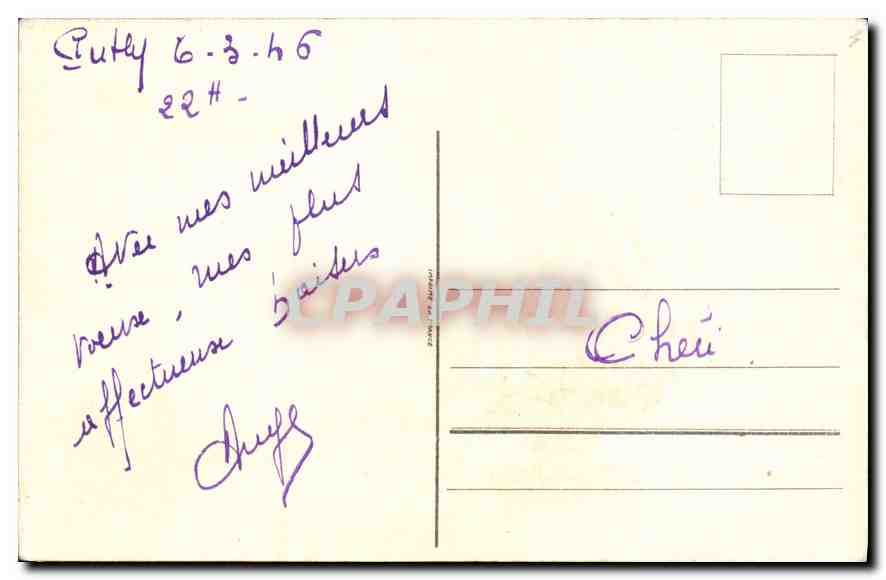 6-3-46
22H-
Avec mes meilleurs
voeux, mes plus
affectueuse baisers
Ange
IMPRIMÉ EN FRANCE
CPAPHIL
Chéri